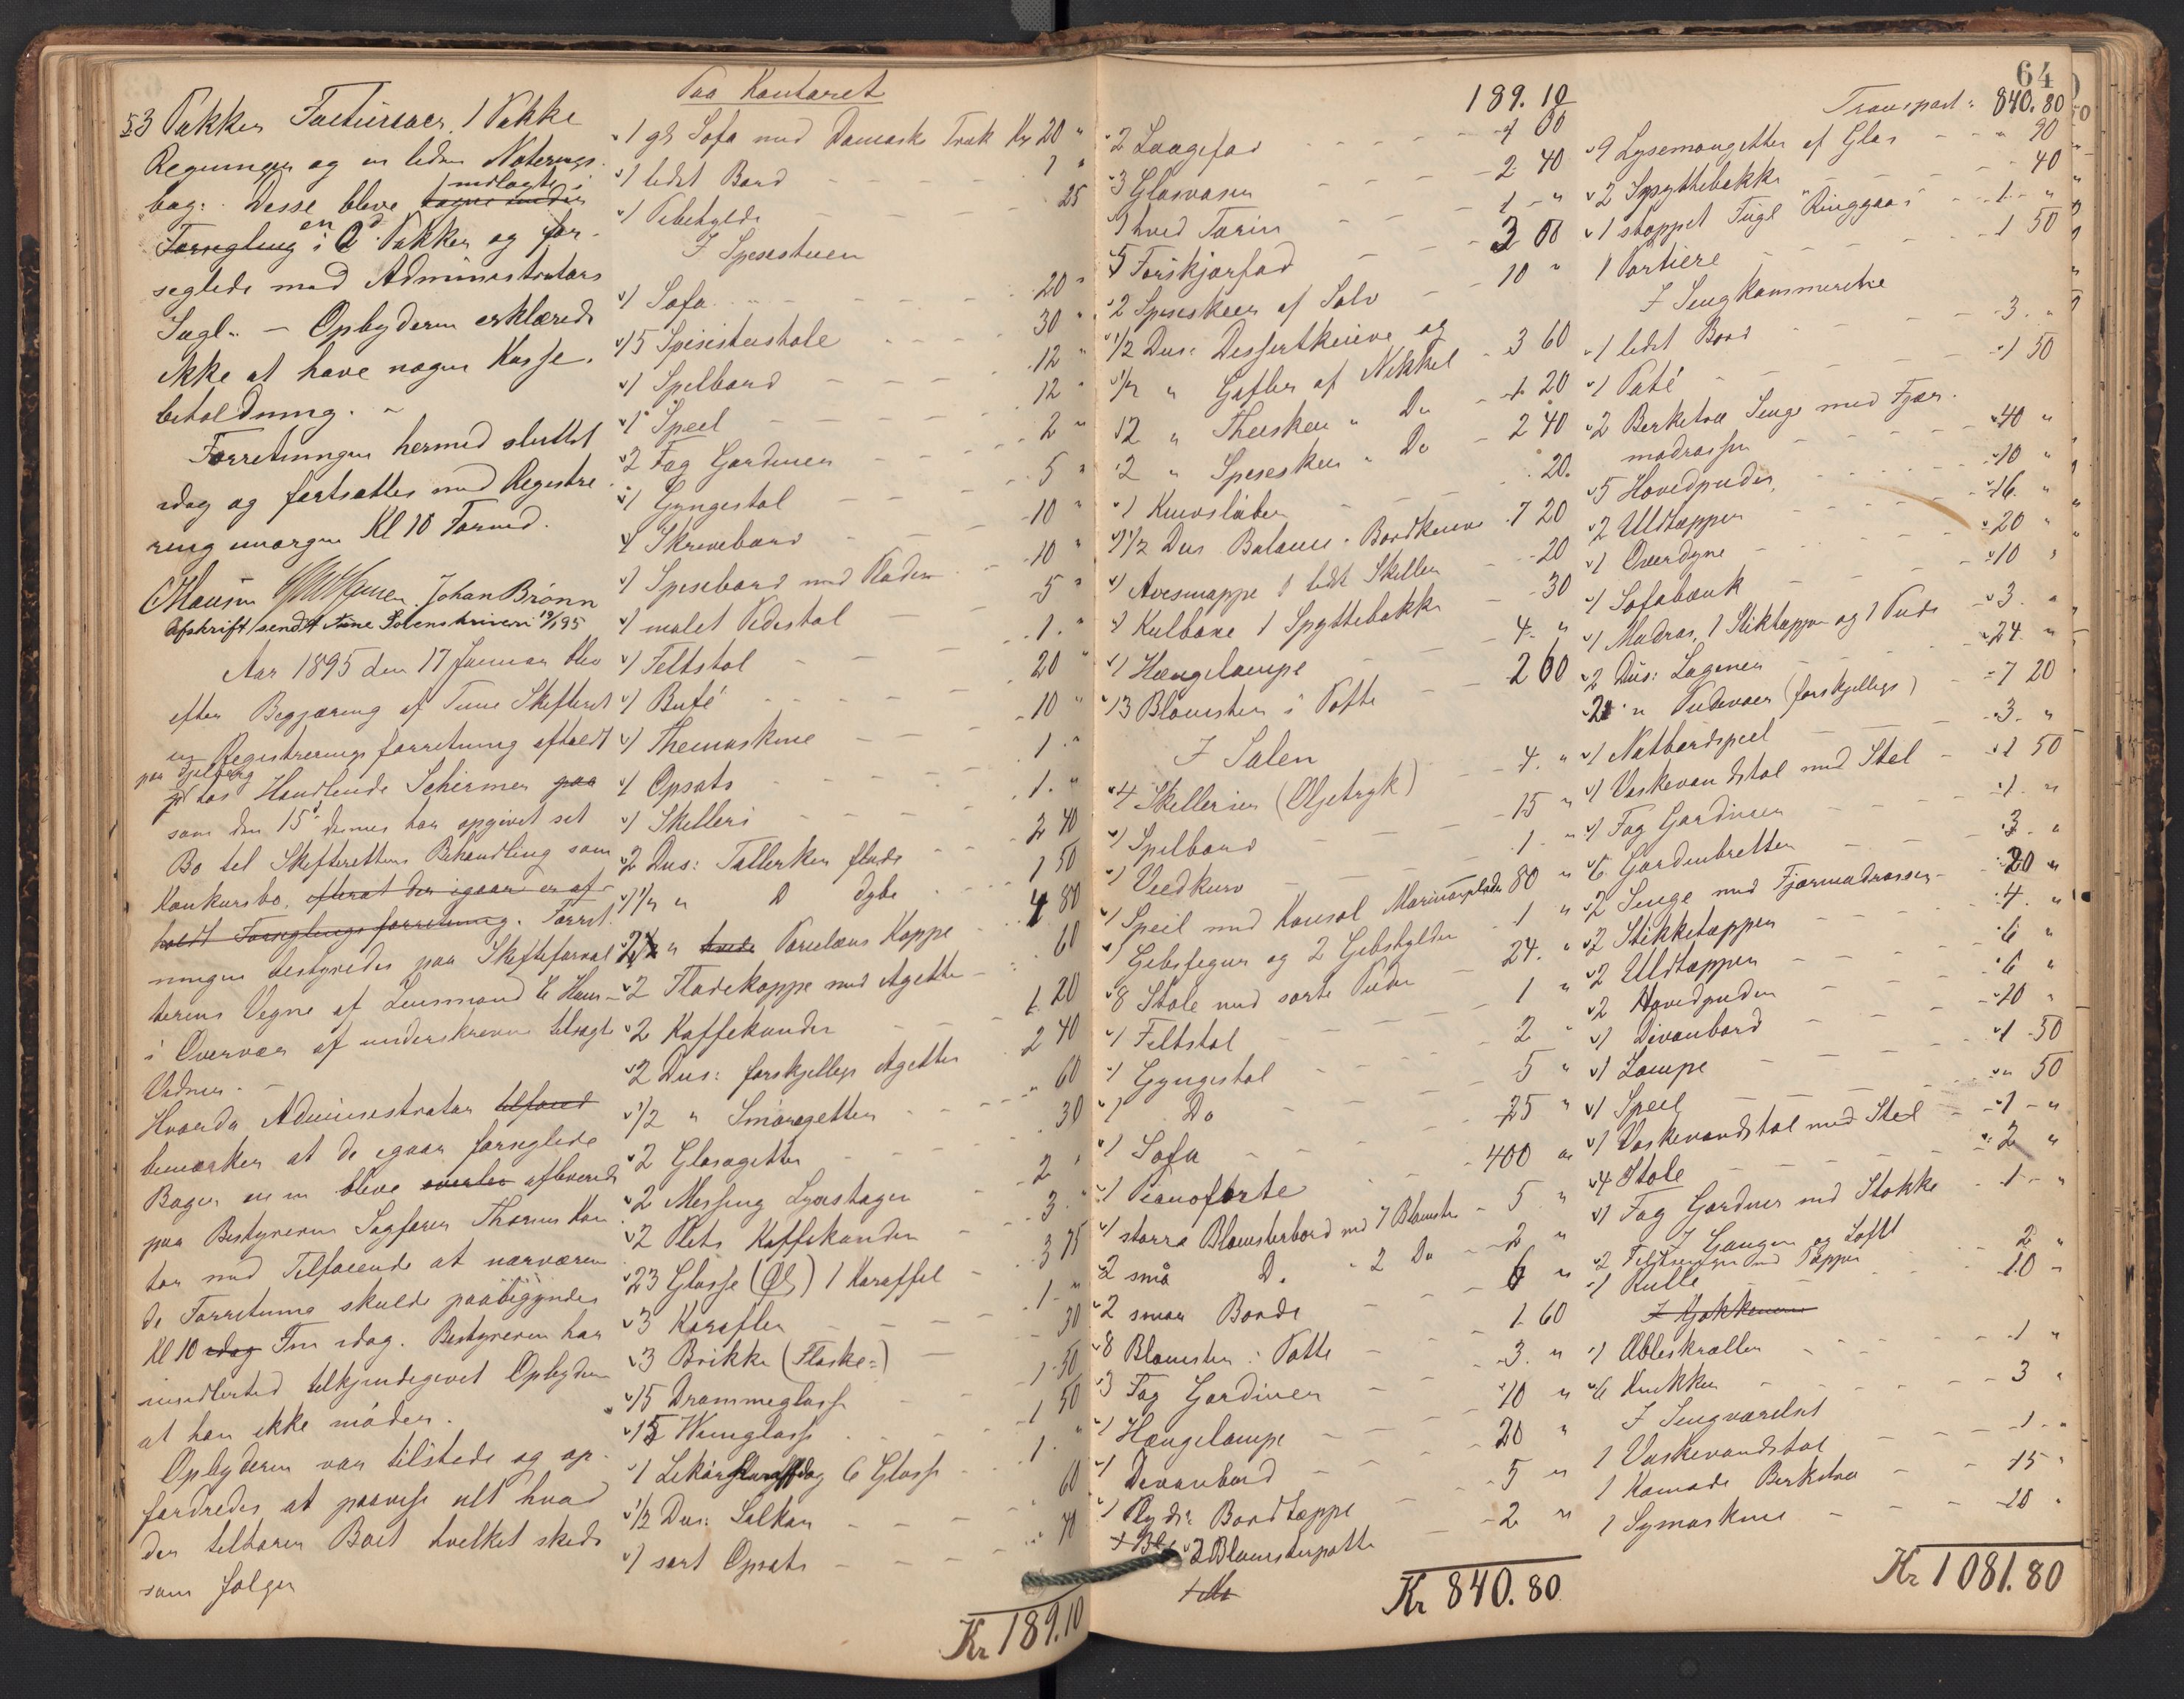 53 Pakker Facturaer, 1 Pakke
Regninger og en liden Noterings-
bog. Disse bleve indlagte i
Forsegling en i 2d Pakker og for-
seglede med Administrators
Segl. — Opbyderen erklærede
ikke at have nogen Kasse-
beholdning. —
Forretningen hermed sluttet
idag og fortsættes med Registre-
ring imorgen Kl 10 Formd.
C Hansen Johan Brønn
Afskrift sendt Tune Sorenskriveri 19/1 95
Aar 1895 den 17 Januar blev
efter Begjæring af Tune Skifteret
en Registrerings forretning afholdt
paa
hos Handlende Schirmer paa
som den 15d dennes har opgivet sit
Bo til Skifterettens Behandling som
Konkursbo, efterat der igaar er af-
holdt Forseglings forretning. Forret-
ningen bestyredes paa Skifteforval-
terens Vegne af Lensmand C Hansen
i Overvær af underskrevne tilsagte
Vidner. —
Hvorda Administrator tilføied
bemærker at de igaar forseglede
Bøger en m blive afleverede
paa Bestyreren Sagfører Thornes Kon-
tor med Tilføiende at nærværen-
de Forretning skulde paabegyndes
Kl 10 idag Fm idag. Bestyreren har
imidlertid tilkjendegivet Opbyderen
at han ikke møder.
Opbyderen var tilstede og op-
fordredes at paavise alt hvad
der tilhører Boet hvilket skede
som følger
Paa Kontoret
1 gl Sofa med Damask Træk Kr 20 "
1 lidet Bord 1 "
1 Pibehylde 25
I Spisestuen
1 Sofa 20 "
15 Spisestustole 30 "
1 Spilbord 12 "
1 Speil 12 "
2 Fag Gardiner 2 "
1 Gyngestol 5 "
1 Skrivebord 10 "
1 Spisebord med Plader 10 "
1 malet Pidestal 5 "
1 Feltstol 1. "
1 Bufé 20 "
1 Themaskine 10 "
1 Opsats 1 "
1 Skilleri 1. "
2 Dus: Tallerken flade 2 40
1 1/2 " D dybe 1 50
2 " hvide Porcelæns Koppe 4 80
2 Flødekoppe med Agette 60
2 Kaffekander 1 20
2 Dus: forskjellige Agetter 2 40
1/2 " Smøragetter 60
2 Glasagetter 30
2 Messing Lysestager 2 "
2 Plets Kaffekander 3. "
23 Glasse (Øl) 1 Karaffel 3 75
3 Karafler 1 "
3 Brikke (Flaske-) 30
15 Drammeglasse 1 50
15 Wiinglasse 1 50
1 Likør og 6 Glasse 1. "
1/2 Dus: Saltkar 60
1 sort Opsats 70
Kr 189.10
189.10
2 Laagefad 4 00
3 Glasvaser 2 40
1 hvid Tørin 1 "
5 Forskjærfad 3 00
2 Spiseskeer af Sølv 10 "
1/2 Dus: Dessertknive og
1/2 " Gafler af Nikkel 3 60
12 " Theskeer " Do 1 20
2 " Spiseskeer " Do 2 40
1 Knivsliber 20.
1 1/2 Dus Balance-Bordknive 7 20
1 Avismappe 1 lidt Skilleri 20
1 Kulboxe 1 Spyttebakke 30
1 Hængelampe 4. "
13 Blomster i Potte 2 60
I Salen
4 Skillerier (Oljetryk) 4. "
1 Spilbord 15 "
1 Vedkurv 1 "
1 Speil med Konsol Marmorplade 80 "
1 Gebsfigur og 2 Gebshylder 1 "
8 Stole med sorte Puder 24. "
1 Feltstol 1 "
1 Gyngestol 2 "
1 Do 5 "
1 Sofa 25 "
1 Pianoforte 400 "
1 større Blomsterbord med 7 Blomster 5 "
2 små D. 2 Do 2 "
2 smaa Borde 6 "
8 Blomster i Potte 1 60
3 Fag Gardiner 3. "
1 Hængelampe 10 "
1 Divanbord 20 "
1 Plyds: Bordtæppe 5 "
2 Blomsterpotte 2 "
Kr 840.80
64
Transport: 840.80
9 Lysemangetter af Glas 90
2 Spyttebakke 40
1 stoppet Fugl "Ringgaas" 1 "
1 Portiere 1 50
I Sengkammerne
1 lidet Bord 3. "
1 Puté 1 50
2 Berketræ Senge med Fjær-
madrasser 40 "
5 Hovedpuder 10 "
2 Uldtæpper 16. "
1 Overdyne 20 "
1 Sofabænk 10 "
1 Madras, 1 Stiktæppe og 1 Pude 3. "
2 Dus: Lagener 24. "
2 " Pudevaer (forskjellige) 7 20
1 Natbordspeil 3. "
1 Vaskevandstol med Stel 1 50
1 Fag Gardiner 1. "
6 Gardinbretter 3. "
2 Senge med Fjærmadrasser 20 "
2 Stikketæpper 4. "
2 Uldtæpper 6 "
2 Hovedpuder 6 "
1 Divanbord 10 "
1 Lampe 1 50
1 Speil 50
1 Vaskevandstol med Stel 1 "
4 Stole 2 "
1 Fag Gardiner med Stokke 1 "
I Gangen og Loftet
2 med Tæpper 2 "
1 Rulle 10 "
I Kjøkkenet
1 Æbleskræller 1 "
6 Krukker 3 "
I Sengværelset
1 Vaskevandstol 1 "
1 Komode Berketræ 15 "
1 Symaskine 20 "
Kr 1081.80